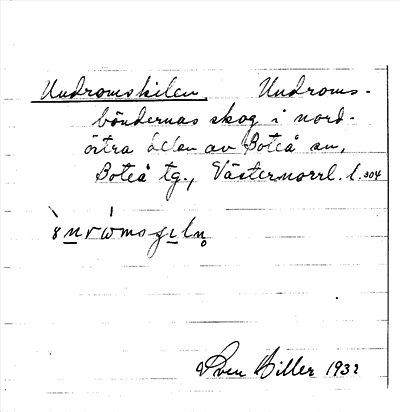 Undromskilen, Undroms-
böndernas skog i nord-
östra delen av Boteå sn,
Boteå tg., Västernorrl. l. 304
Sven Biller 1932